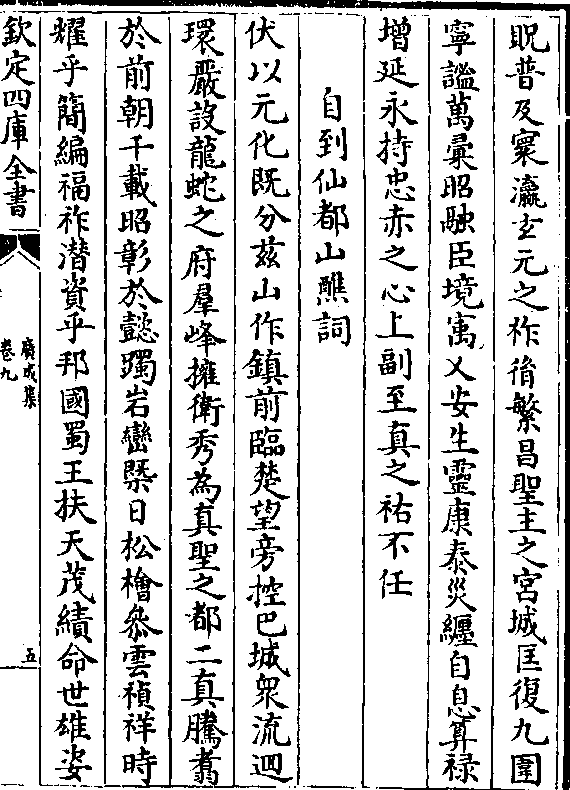 貺普及寰瀛玄元之祚胤繁昌聖主之宮城匡復九圍
寧謐萬彙昭融臣境寓乂安生靈康泰災纏自息算祿
增延永持忠赤之心上副至真之祐不任
自到仙都山醮詞
伏以元化既分茲山作鎮前臨楚望旁控巴城衆流迴
環嚴設龍蛇之府羣峰擁衛秀為真聖之都二真騰翥
於前朝千載昭彰於懿躅岩巒槩日松檜叅雲禎祥時
耀乎簡編福祚潜資乎邦國蜀王扶天茂績命世雄姿
欽定四庫全書
廣成集
卷九
五